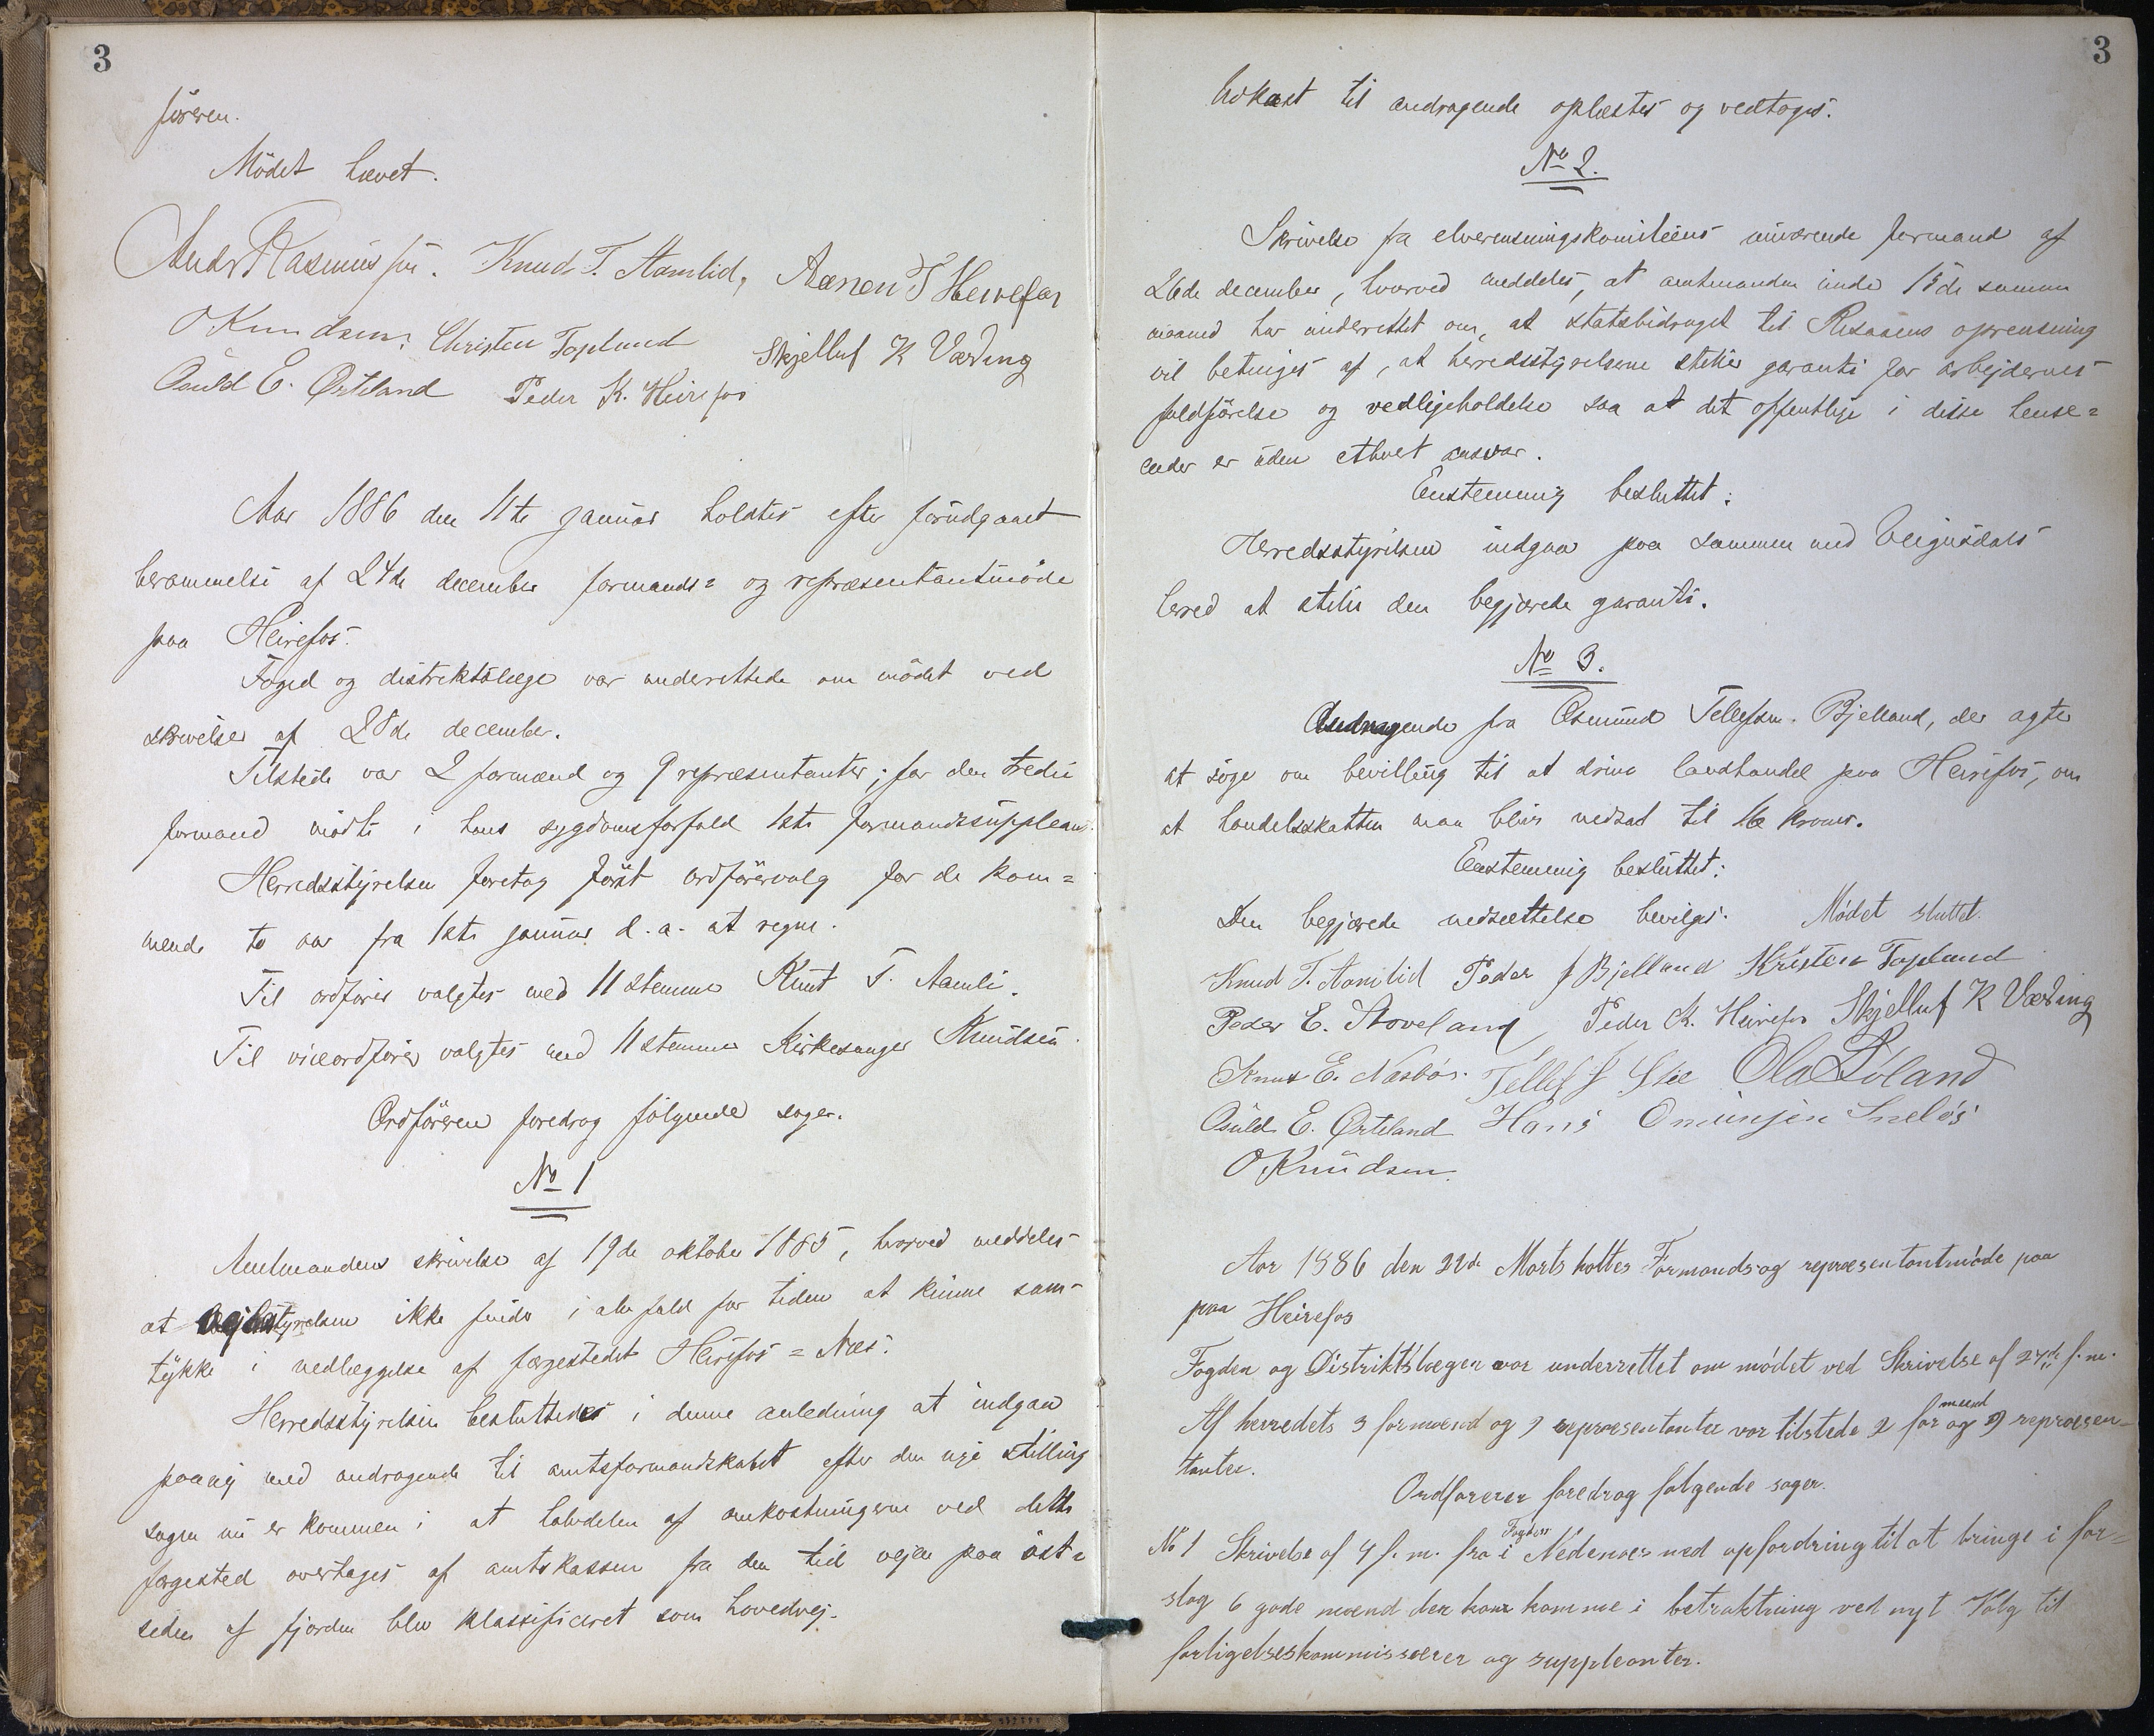 3
føreren.
Mödet hævet.
And. Rasmussen. Knud T. Aamlid, Aanen T Heirefos
O Knudsen. Christen Topland Skjelluf K Væding
Osuld E. Østeland Peder K. Heirefos
Aar 1886 den 11te januar holdtes efter forudgaaet
berammelse af 24de december formands= og repræsentantmöde
paa Heirefos.
Foged og distriktslæge var underrettede om mödet ved
skrivelser af 28de december.
Tilstede var 2 formænd og 9 repræsentanter; for den tredie
formand mödte i hans sygdomsforfald 1ste formandssuppleant.
Herredsstyrelsen foretog först ordförervalg for de kom=
mende to aar fra 1ste januar d. a. at regne.
Til ordförer valgtes med 11 stemmer Knut T. Aamli.
Til viceordförer valgtes med 11 stemmer Kirkesanger Knudsen.
Ordföreren foredrog fölgende sager.
No 1
Amtmandens skrivelse af 19de oktober 1885, hvorved meddeles
at vejbestyrelsen ikke finder i alle fald for tiden at kunne sam-
tykke i nedlæggelse af færgestedet Heirefos = Næs.
Herredsstyrelsen besluttedes i denne anledning at indgaa
paany med andragende til amtsformandskabet efter den nye stilling
sagen nu er kommen i at halvdelen af omkostningerne ved dette
færgested overtages af amtskassen fra den tid vejen paa öst=
siden af fjorden blev klassificeret som hovedvej.
3
Udkast til andragende oplæstes og vedtoges.
No 2.
Skrivelse fra elverensningskomiteens nuværende formand af
26de december, hvorved meddeles, at amtmanden under 15de samme
maaned har underrettet om, at statsbidraget til Risaaens oprensning
vil betinges af, at herredsstyrelserne stiller garanti for arbejdernes
fuldförelse og vedligeholdelse saa at det offentlige i disse hense=
ender er uden ethvert ansvar.
Eenstemmig besluttet:
Herredsstyrelsen indgaar paa sammen med Vegusdals
herred at stille den begjærede garanti.
No 3.
Andragende fra Osmund Tellefsen Bjelland, der agter
at söge om bevilling til at drive landhandel paa Heirefos, om
at handelsskatten maa blive nedsat til 16 kroner.
Eenstemmig besluttet:
Den begjærede nedsættelse bevilges. Mödet sluttet.
Knud T. Aamlid Peder J Bjelland Kristen Topland
Peder E. Stoveland Peder K. Heirefos Skjelluf K Væding
Knut E. Næsbös. Tellef J Ola
Osuld E. Østeland Hans Omunsen Snelös
O Knudsen.
Aar 1886 den 22de Marts holtes Formands og repræsentantmøde paa
paa Heirefos
Fogden og Distriktslægen var underrettet om mødet ved Skrivelse af 27de f. m.
Af herredets 3 formænd og 9 repræsentanter var tilstede 2 formænd og 9 repræsen-
tanter.
Ordføreren foredrog følgende sager.
No 1 Skrivelse af 4 f. m. fra Fogden i Nedenæs med opfordring til at bringe i for=
slag 6 gode mænd der kan komme i betraktning ved nyt Valg til
forligelseskommissærer og suppleanter.